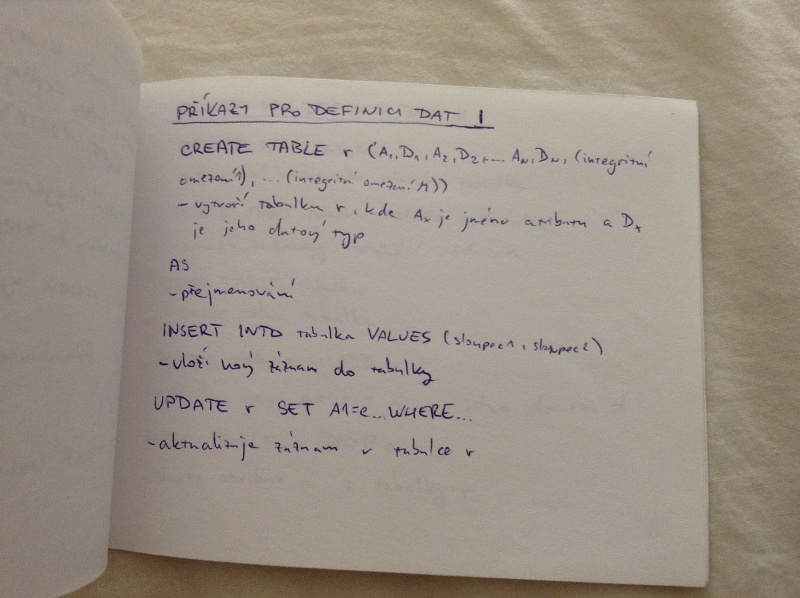 PŘÍKAZY PRO DEFINICI DAT 1
CREATE TABLE r (A1, D1, A2, D2, ... AN, DN, (integritní
omezení 1), ... (integritní omezení M))
- vytvoří tabulku r, kde Ax je jméno atributu a Dx
je jeho datový typ
AS
- přejmenování
INSERT INTO tabulka VALUES (sloupec1, sloupec2)
- vloží nový záznam do tabulky
UPDATE r SET A1=e... WHERE...
- aktualizuje záznam v tabulce r